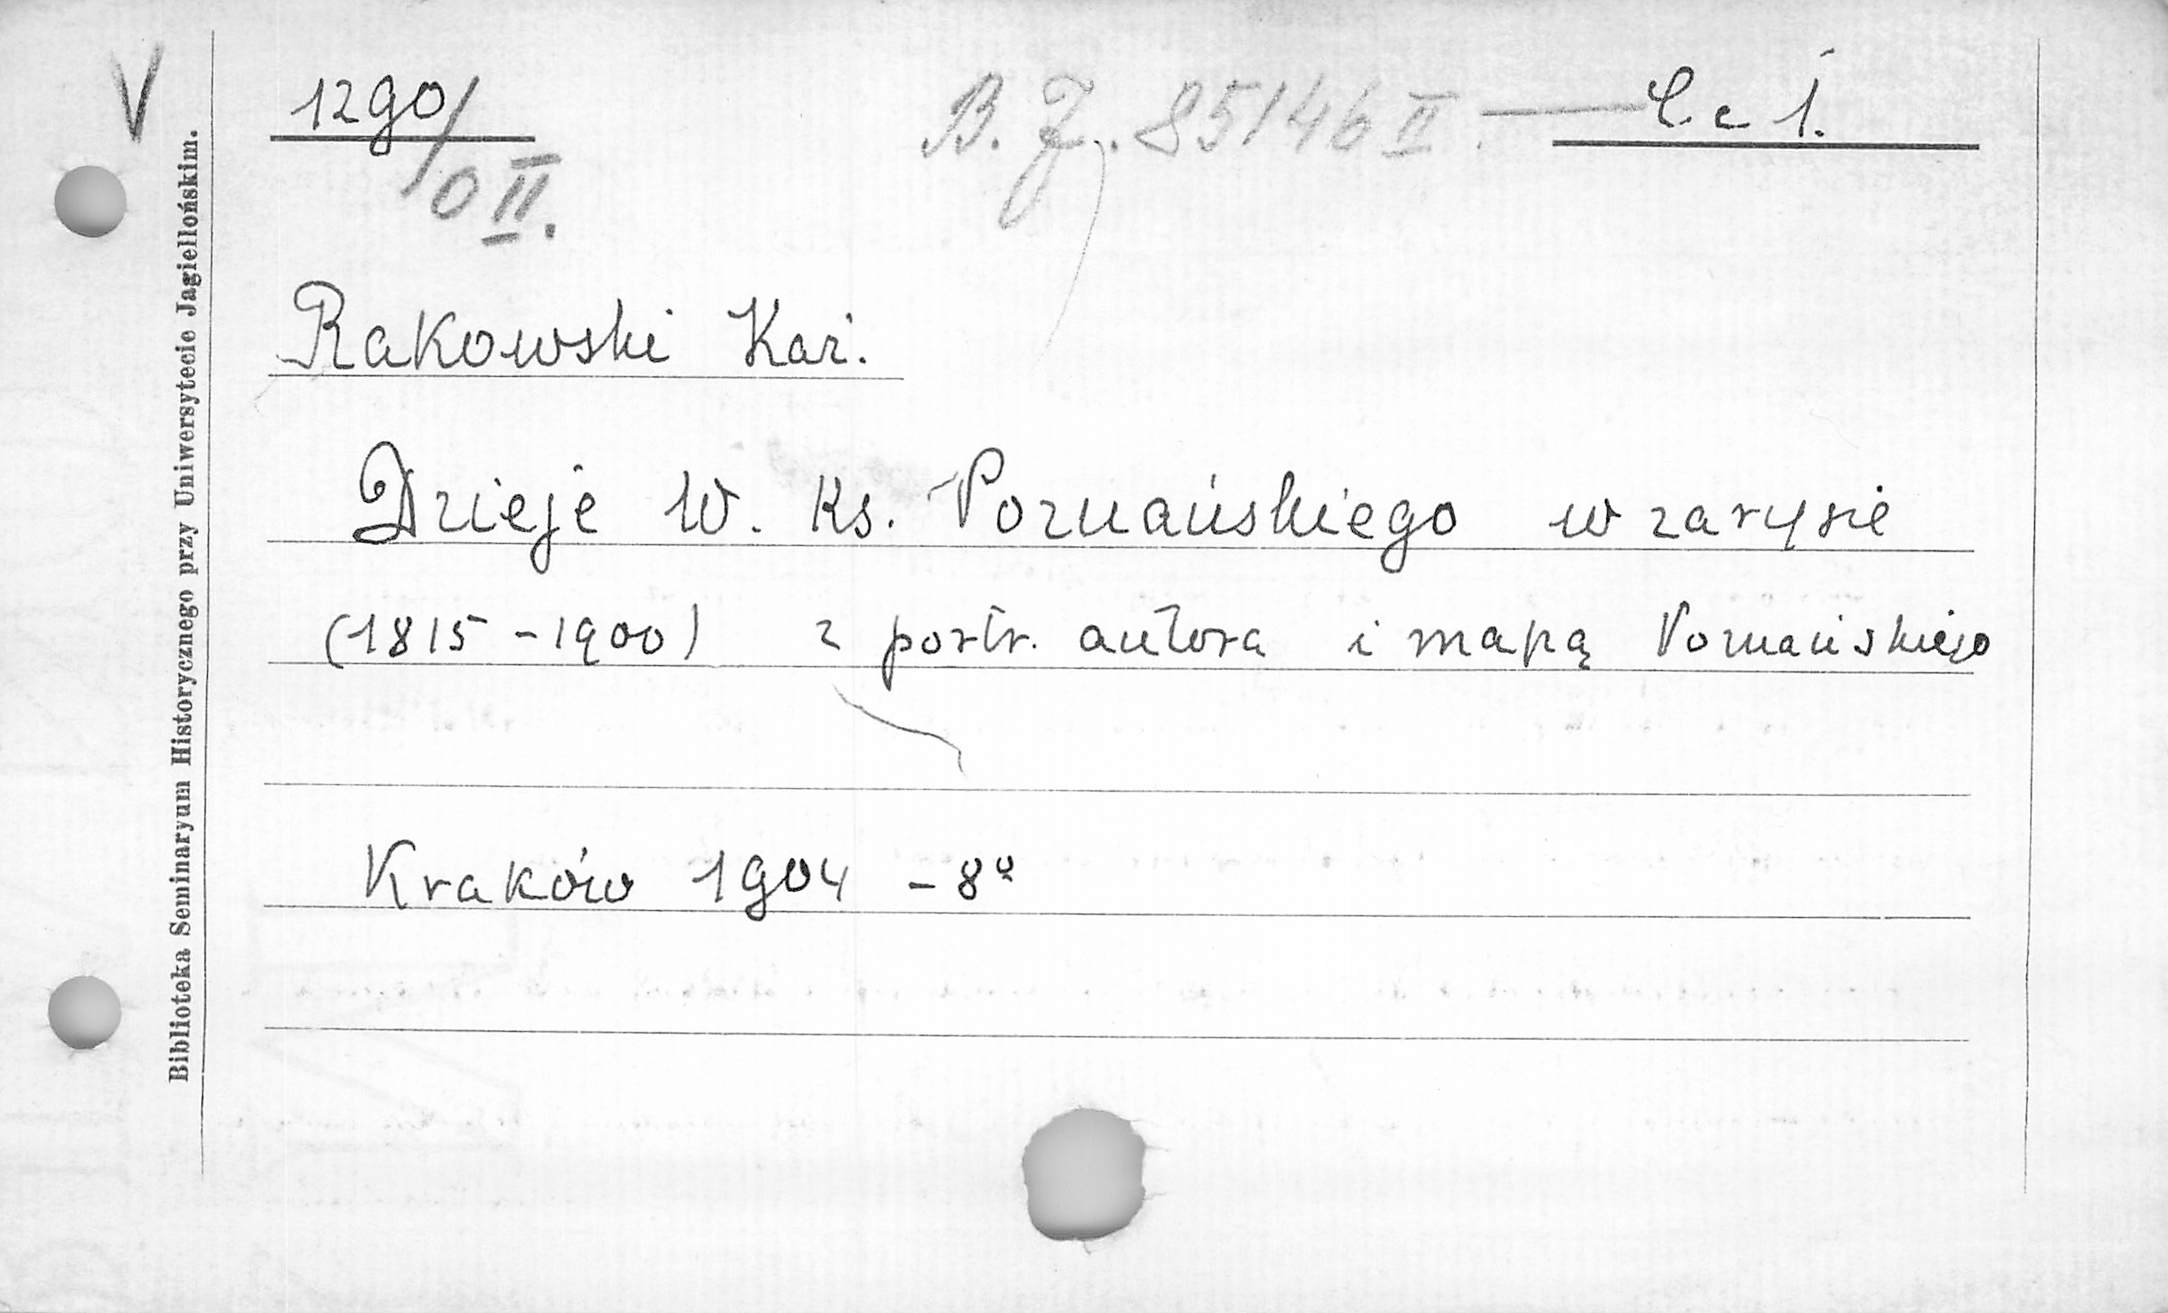 V
1290/0 II.
B. J. 85146 II — C. c 1.
Rakowski Kaz.
Dzieje W. Ks. Poznańskiego w zarysie
(1815-1900) z portr. autora i mapą Poznańskiego
Kraków 1904 - 8º
Biblioteka Seminaryum Historycznego przy Uniwersytecie Jagiellońskim.